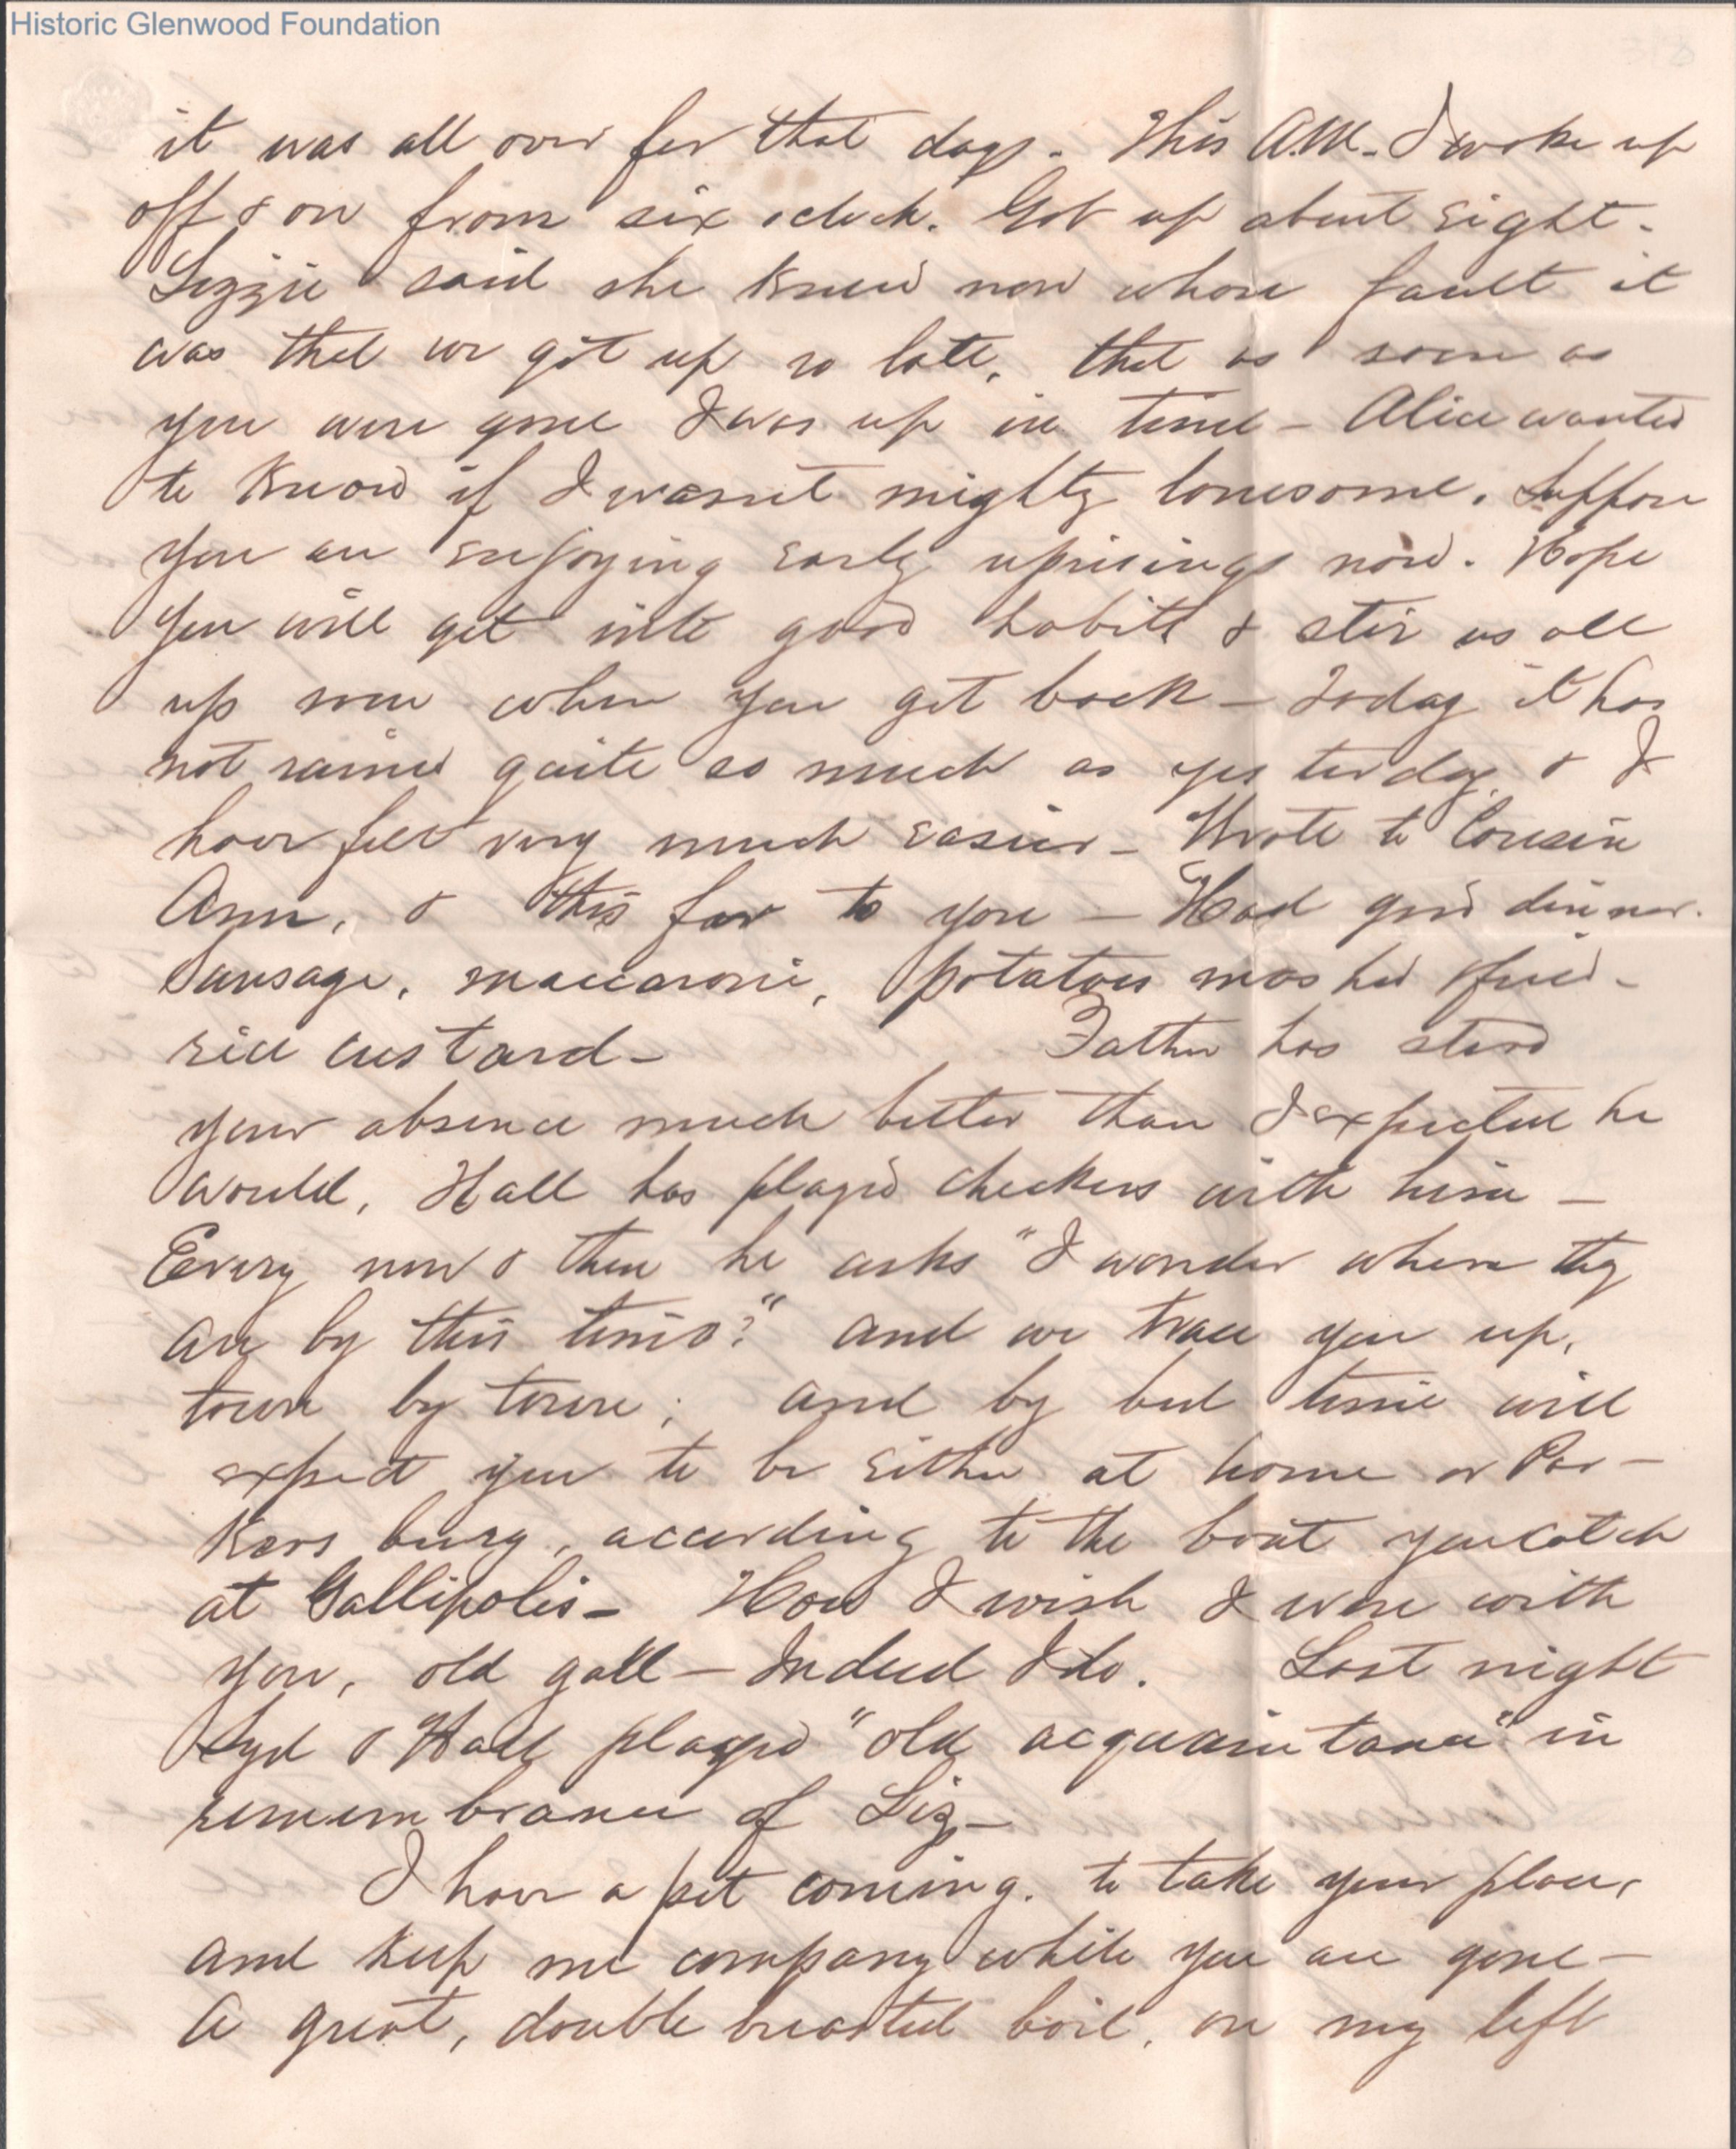 Historic Glenwood Foundation
it was all over for that day. This A.M. I woke up
off & on from six oclock. Got up about eight.
Lizzie said she knew now whose fault it
was that we got up so late, that as soon as
you were gone I was up in time - Alice wanted
to know if I wasnt mighty lonesome. Suppose
you are enjoying early uprisings now. Hope
you will get into good habits & stir us all
up some when you get back - Today it has
not rained quite so much as yesterday & I
have felt very much easier - Wrote to Cousin
Ann, & this far to you - Had good dinner.
Sausage, maccaroni, potatoes mashed & fried -
rice custard - Father has stood
your absence much better than I expected he
would, Hall has played checkers with him -
Every now & then he asks "I wonder where they
are by this time?" and we trace you up,
town by town; and by bed time will
expect you to be either at home or Par-
kersburg, according to the boat you catch
at Gallipolis - How I wish I were with
you, old gall - Indeed I do. Last night
Syd & Hall played "old acquaintance" in
remembrance of Liz -
I have a pet coming. to take your place,
and keep me company while you are gone -
a great, double breasted boil, on my left